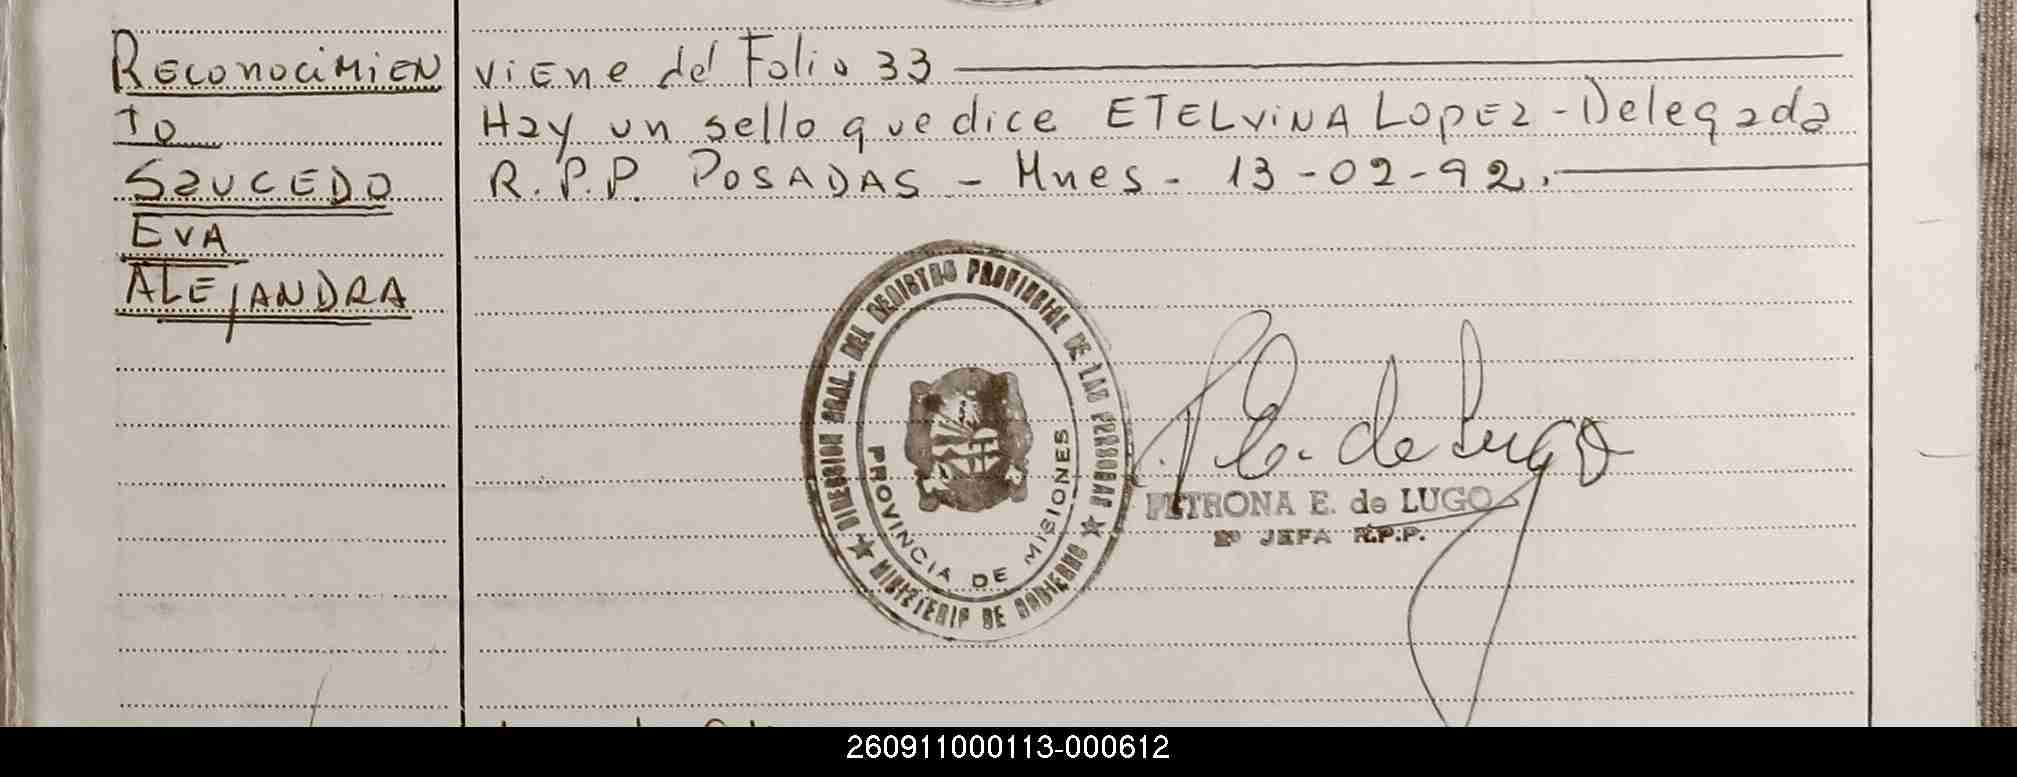 Reconocimien
to
Saucedo
Eva
Alejandra
viene del Folio 33
Hay un sello que dice ETELVINA Lopez - Delegada
R.P.P. POSADAS - Mnes - 13-02-92.
DIRECCION GRAL. DEL REGISTRO PROVINCIAL DE LAS PERSONAS
★ MINISTERIO DE GOBIERNO ★
PROVINCIA DE MISIONES
P. E. de Lugo
PETRONA E. de LUGO
JEFA R.P.P.
260911000113-000612